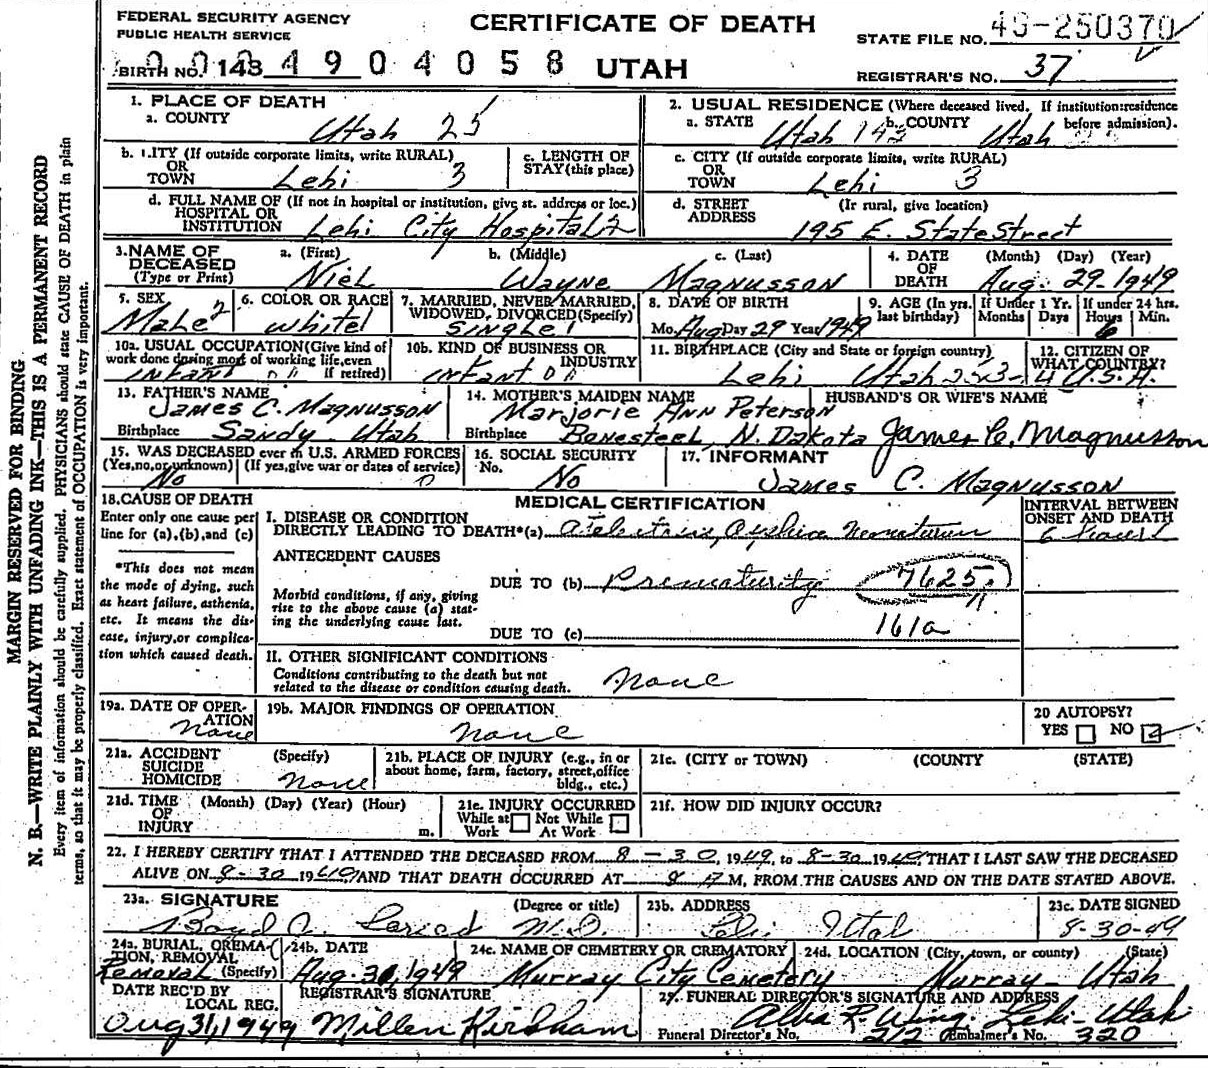 FEDERAL SECURITY AGENCY
PUBLIC HEALTH SERVICE
CERTIFICATE OF DEATH
STATE FILE NO. 49-250370
BIRTH NO. 143 4904058 UTAH
REGISTRAR'S NO. 37
1. PLACE OF DEATH
a. COUNTY
Utah 25
2. USUAL RESIDENCE (Where deceased lived. If institution:residence before admission).
a. STATE Utah 143 b. COUNTY Utah
b. CITY (If outside corporate limits, write RURAL)
OR
TOWN Lehi 3
c. LENGTH OF
STAY (this place)
c. CITY (If outside corporate limits, write RURAL)
OR
TOWN Lehi 3
d. FULL NAME OF (If not in hospital or institution, give st. address or loc.)
HOSPITAL OR
INSTITUTION Lehi City Hospital 2
d. STREET (If rural, give location)
ADDRESS 195 E. State Street
3. NAME OF DECEASED (Type or Print)
a. (First) b. (Middle) c. (Last)
Niel Wayne Magnusson
4. DATE OF DEATH (Month) (Day) (Year)
Aug. 29-1949
5. SEX
Male 2
6. COLOR OR RACE
White 1
7. MARRIED, NEVER MARRIED, WIDOWED, DIVORCED (Specify)
Single 1
8. DATE OF BIRTH
Mo. Aug Day 29 Year 1949
9. AGE (In yrs. last birthday) If Under 1 Yr. Months Days If under 24 hrs. Hours Min.
6
10a. USUAL OCCUPATION (Give kind of work done during most of working life, even if retired)
Infant
10b. KIND OF BUSINESS OR INDUSTRY
Infant
11. BIRTHPLACE (City and State or foreign country)
Lehi Utah
12. CITIZEN OF WHAT COUNTRY?
U.S.A.
13. FATHER'S NAME
James C. Magnusson
Birthplace Sandy Utah
14. MOTHER'S MAIDEN NAME
Marjorie Ann Peterson
Birthplace Bonesteel, N. Dakota
HUSBAND'S OR WIFE'S NAME
James C. Magnusson
15. WAS DECEASED ever in U.S. ARMED FORCES
(Yes, no, or unknown) (If yes, give war or dates of service)
No 0
16. SOCIAL SECURITY
No. No
17. INFORMANT
James C. Magnusson
18. CAUSE OF DEATH
Enter only one cause per line for (a), (b), and (c)
*This does not mean the mode of dying, such as heart failure, asthenia, etc. It means the disease, injury, or complication which caused death.
MEDICAL CERTIFICATION
INTERVAL BETWEEN ONSET AND DEATH
I. DISEASE OR CONDITION
DIRECTLY LEADING TO DEATH*(a) Neonatorum
6 hours
ANTECEDENT CAUSES
DUE TO (b) Prematurity 7625
Morbid conditions, if any, giving rise to the above cause (a) stating the underlying cause last.
DUE TO (c) 161a
II. OTHER SIGNIFICANT CONDITIONS
Conditions contributing to the death but not related to the disease or condition causing death. None
19a. DATE OF OPERATION
None
19b. MAJOR FINDINGS OF OPERATION
None
20 AUTOPSY?
YES NO
21a. ACCIDENT (Specify)
SUICIDE
HOMICIDE None
21b. PLACE OF INJURY (e.g., in or about home, farm, factory, street, office bldg., etc.)
21c. (CITY or TOWN) (COUNTY) (STATE)
21d. TIME (Month) (Day) (Year) (Hour)
OF
INJURY m.
21e. INJURY OCCURRED
While at Work Not While At Work
21f. HOW DID INJURY OCCUR?
22. I HEREBY CERTIFY THAT I ATTENDED THE DECEASED FROM 8-30, 1949, to 8-30 1949, THAT I LAST SAW THE DECEASED
ALIVE ON 8-30 1949, AND THAT DEATH OCCURRED AT M, FROM THE CAUSES AND ON THE DATE STATED ABOVE.
23a. SIGNATURE (Degree or title)
Boyd M.D.
23b. ADDRESS
Lehi Utah
23c. DATE SIGNED
8-30-49
24a. BURIAL, CREMATION, REMOVAL (Specify)
Removal
24b. DATE
Aug. 30, 1949
24c. NAME OF CEMETERY OR CREMATORY
Murray City Cemetery
24d. LOCATION (City, town, or county) (State)
Murray - Utah
DATE REC'D BY LOCAL REG.
Aug 31, 1949
REGISTRAR'S SIGNATURE
Millen Kirkham
25. FUNERAL DIRECTOR'S SIGNATURE AND ADDRESS
Alva R. Wing. Lehi-Utah
Funeral Director's No. 212 Embalmer's No. 320
MARGIN RESERVED FOR BINDING
N. B.—WRITE PLAINLY WITH UNFADING INK—THIS IS A PERMANENT RECORD
Every item of information should be carefully supplied. PHYSICIANS should state CAUSE OF DEATH in plain
terms, so that it may be properly classified. Exact statement of OCCUPATION is very important.